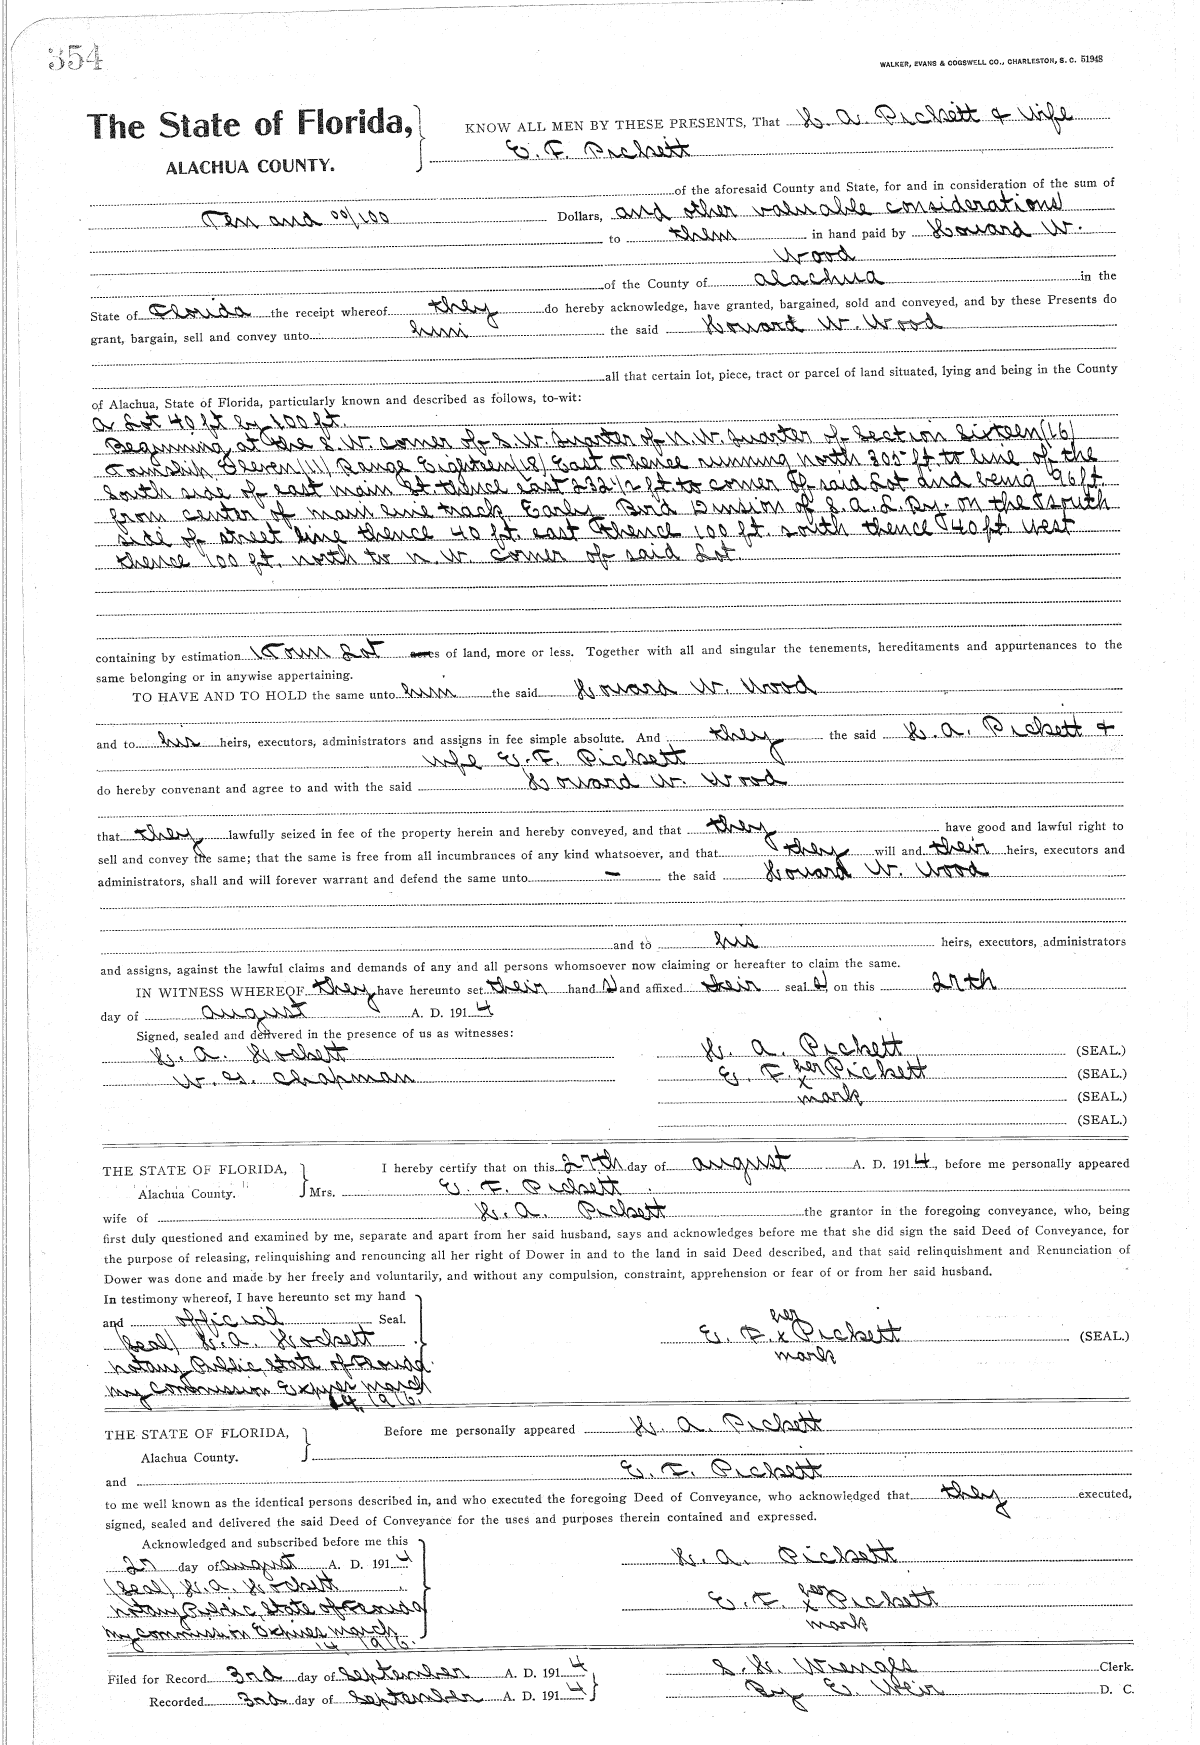 354
WALKER, EVANS & COGSWELL CO., CHARLESTON, S. C. 51948
The State of Florida,
ALACHUA COUNTY.
KNOW ALL MEN BY THESE PRESENTS, That H. A. Pickett & Wife
E. F. Pickett
of the aforesaid County and State, for and in consideration of the sum of
Ten and 00/100 Dollars, and other valuable considerations
to them in hand paid by Howard W.
Wood
of the County of Alachua in the
State of Florida the receipt whereof they do hereby acknowledge, have granted, bargained, sold and conveyed, and by these Presents do
grant, bargain, sell and convey unto him the said Howard W. Wood
all that certain lot, piece, tract or parcel of land situated, lying and being in the County
of Alachua, State of Florida, particularly known and described as follows, to-wit:
A Lot 40 ft by 100 ft.
Beginning at the S.W. corner of S.W. Quarter of N.W. Quarter of Section Sixteen (16)
Township Eleven (11) Range Eighteen (18) East Thence running north 305 ft. to line of the
South side of east main St. thence east 232 1/2 ft. to corner of said Lot and being 96 ft
from center of main line track Early Bird Division of S. A. L. Ry. on the South
side of street line thence 40 ft. east thence 100 ft. south thence 40 ft west
thence 100 ft. north to N. W. corner of said Lot.
containing by estimation Town Lot acres of land, more or less. Together with all and singular the tenements, hereditaments and appurtenances to the
same belonging or in anywise appertaining.
TO HAVE AND TO HOLD the same unto him the said Howard W. Wood
and to his heirs, executors, administrators and assigns in fee simple absolute. And they the said H. A. Pickett &
wife E. F. Pickett
do hereby convenant and agree to and with the said Howard W. Wood
that they lawfully seized in fee of the property herein and hereby conveyed, and that they have good and lawful right to
sell and convey the same; that the same is free from all incumbrances of any kind whatsoever, and that they will and their heirs, executors and
administrators, shall and will forever warrant and defend the same unto — the said Howard W. Wood
and to his heirs, executors, administrators
and assigns, against the lawful claims and demands of any and all persons whomsoever now claiming or hereafter to claim the same.
IN WITNESS WHEREOF, they have hereunto set their hand s and affixed their seal s on this 27th
day of August A. D. 191 4
Signed, sealed and delivered in the presence of us as witnesses:
H. A. Hockett
W. G. Chapman
H. A. Pickett (SEAL.)
E. F. her x Pickett (SEAL.)
mark (SEAL.)
(SEAL.)
THE STATE OF FLORIDA,
Alachua County.
I hereby certify that on this 27th day of August A. D. 191 4, before me personally appeared
Mrs. E. F. Pickett
wife of H. A. Pickett the grantor in the foregoing conveyance, who, being
first duly questioned and examined by me, separate and apart from her said husband, says and acknowledges before me that she did sign the said Deed of Conveyance, for
the purpose of releasing, relinquishing and renouncing all her right of Dower in and to the land in said Deed described, and that said relinquishment and Renunciation of
Dower was done and made by her freely and voluntarily, and without any compulsion, constraint, apprehension or fear of or from her said husband.
In testimony whereof, I have hereunto set my hand
and official Seal.
(Seal) H. A. Hockett
Notary Public, State of Florida
My Commission Expires March
14, 1916.
her
E. F. x Pickett (SEAL.)
mark
THE STATE OF FLORIDA,
Alachua County.
Before me personally appeared H. A. Pickett
and E. F. Pickett
to me well known as the identical persons described in, and who executed the foregoing Deed of Conveyance, who acknowledged that they executed,
signed, sealed and delivered the said Deed of Conveyance for the uses and purposes therein contained and expressed.
Acknowledged and subscribed before me this
27 day of August A. D. 191 4
(Seal) H. A. Hockett
Notary Public, State of Florida
My commission Expires March
14 1916.
H. A. Pickett
E. F. her x Pickett
mark
Filed for Record 3rd day of September A. D. 191 4
Recorded 3rd day of September A. D. 191 4
S. H. Wienges Clerk.
By E. Weir D. C.